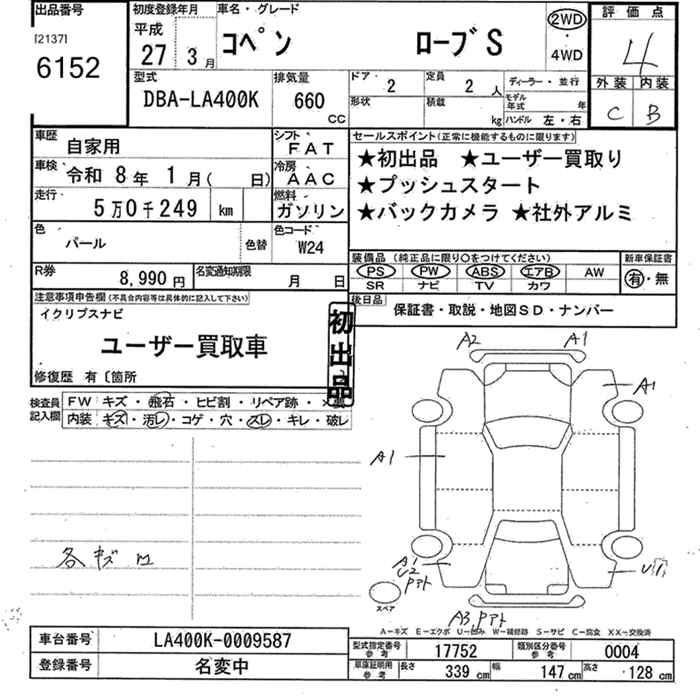 出品番号
[2137]
6152
初度登録年月
平成
27 3月
車名・グレード
コペン ローブS
2WD
・
4WD
評価点
4
外装 内装
C B
型式
DBA-LA400K
排気量
660
CC
ドア・
2
定員
2人
形状
積載
kg
ディーラー・並行
モデル年式 年
ハンドル 左・右
車歴
自家用
シフト
FAT
車検
令和 8年 1月( 日)
冷房
AAC
走行
5万0千249 km
燃料
ガソリン
色
パール
色替
色コード
W24
R券
8,990円
名変通知期限
月 日
セールスポイント(正常に機能するものに限ります)
★初出品 ★ユーザー買取り
★プッシュスタート
★バックカメラ ★社外アルミ
装備品(純正品に限り○をつけてください)
PS PW ABS エアB AW
SR ナビ TV カワ
新車保証書
有・無
後日品
保証書・取説・地図SD・ナンバー
注意事項申告欄(不具合内容等は具体的に記入して下さい)
イクリプスナビ
ユーザー買取車
初出品
修復歴 有〔箇所
検査員記入欄
FW キズ・飛石・ヒビ割・リペア跡・×要
内装 キズ・汚レ・コゲ・穴・スレ・キレ・破レ
A2 A1
A1
A1
各キズ
A1
U2
Pアト
スペア
A3,Pアト
A−キズ E−エクボ U−凹み W−補修跡 S−サビ C−腐食 XX−交換済
車台番号
LA400K-0009587
登録番号
名変中
型式指定番号
参考
17752
類別区分番号
参考
0004
車庫証明用
参考
長さ 339cm 幅 147cm 高さ 128cm